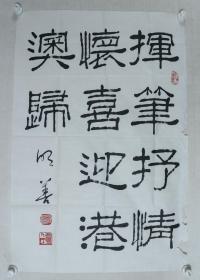 揮筆抒情
懷喜迎港
澳歸
明善